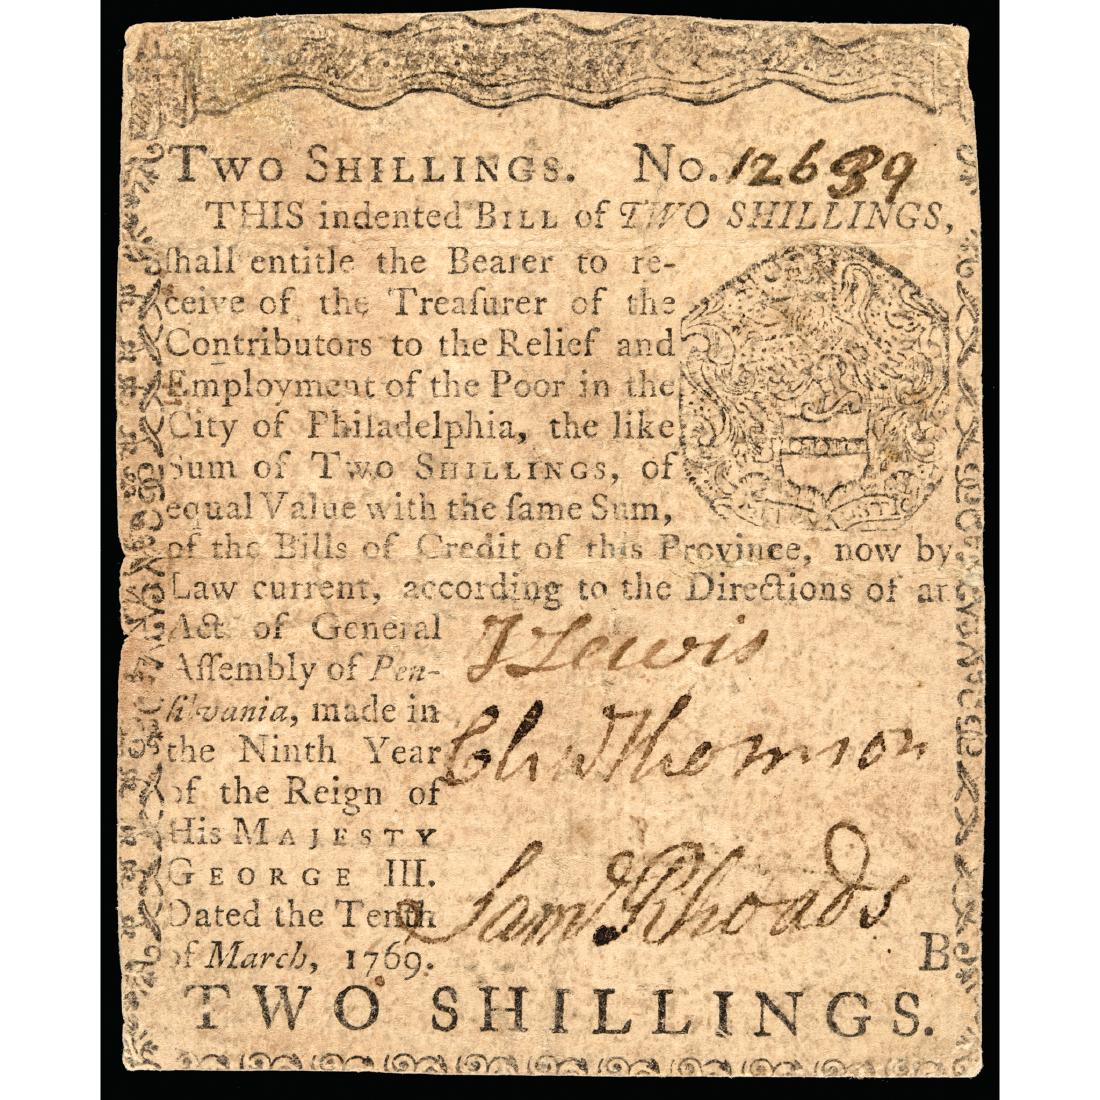 TWO SHILLINGS. No. 12639
THIS indented BILL of TWO SHILLINGS,
ſhall entitle the Bearer to re-
ceive of the Treaſurer of the
Contributors to the Relief and
Employment of the Poor in the
City of Philadelphia, the like
Sum of TWO SHILLINGS, of
equal Value with the ſame Sum,
of the Bills of Credit of this Province, now by
Law current, according to the Directions of an
Act of General
Aſſembly of Pen-
ſilvania, made in
the Ninth Year
of the Reign of
His MAJESTY
GEORGE III.
Dated the Tenth
of March, 1769.
J Lewis
Chas Thomson
Saml Rhoads
B
TWO SHILLINGS.